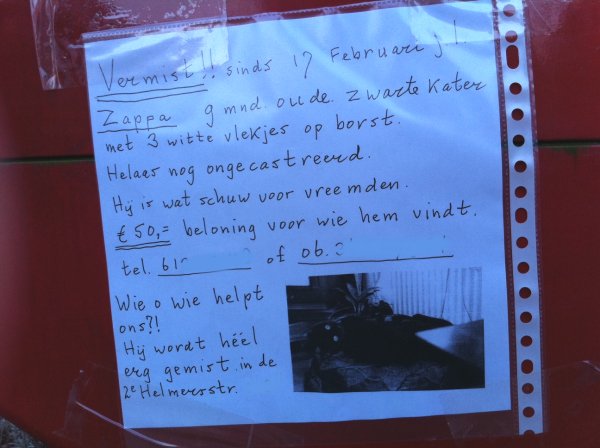 Vermist!! sinds 17 Februari j.l.
Zappa 9 mnd. oude zwarte kater
met 3 witte vlekjes op borst.
Helaas nog ongecastreerd.
Hij is wat schuw voor vreemden.
€ 50,= beloning voor wie hem vindt.
tel. 61 of 06.
Wie o wie helpt
ons?!
Hij wordt héél
erg gemist in de
2e Helmersstr.